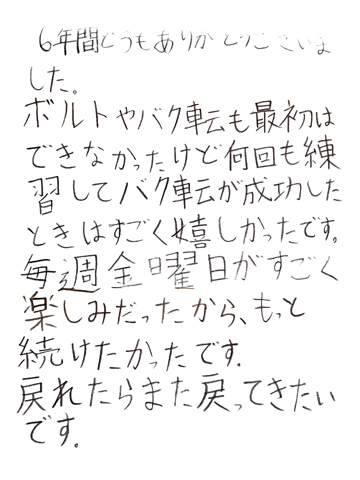 6年間どうもありがとうございま
した。
ボルトやバク転も最初は
できなかったけど何回も練
習してバク転が成功した
ときはすごく嬉しかったです。
毎週金曜日がすごく
楽しみだったから、もっと
続けたかったです.
戻れたらまた戻ってきたい
です。